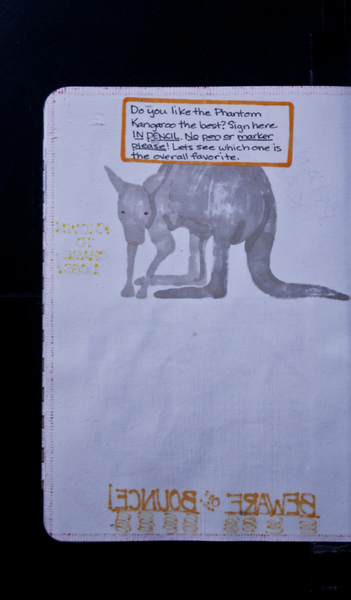 Do you like the Phantom
Kangaroo the best? Sign here
IN PENCIL. No pen or marker
please! Lets see which one is
the overall favorite.
BEWARE of BOUNCE!